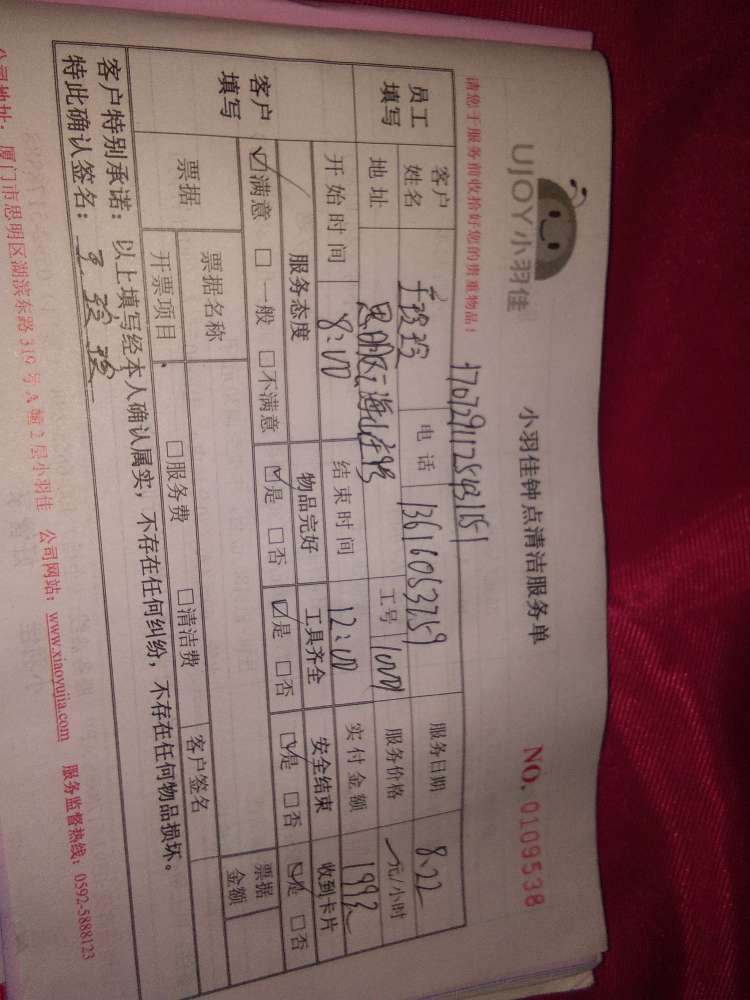 UJOY小羽佳
小羽佳钟点清洁服务单
NO. 0109538
请您于服务前收拾好您的贵重物品！
员工填写
客户姓名
电话 13616053759
服务日期 8.22
地址 思明区
工号
服务价格 元/小时
开始时间 8:00
结束时间 12:00
实付金额 199元
客户填写
服务态度 物品完好 工具齐全 安全结束 收到卡片
☑满意 □一般 □不满意 ☑是 □否 ☑是 □否 ☑是 □否 ☑是 □否
票据 票据名称 票据金额
开票项目 □服务费 □清洁费 客户签名
客户特别承诺：以上填写经本人确认属实，不存在任何纠纷，不存在任何物品损坏。
特此确认签名：
公司地址：厦门市思明区湖滨东路319号A幢2层小羽佳 公司网站：www.xiaoyujia.com 服务监督热线：0592-5888123